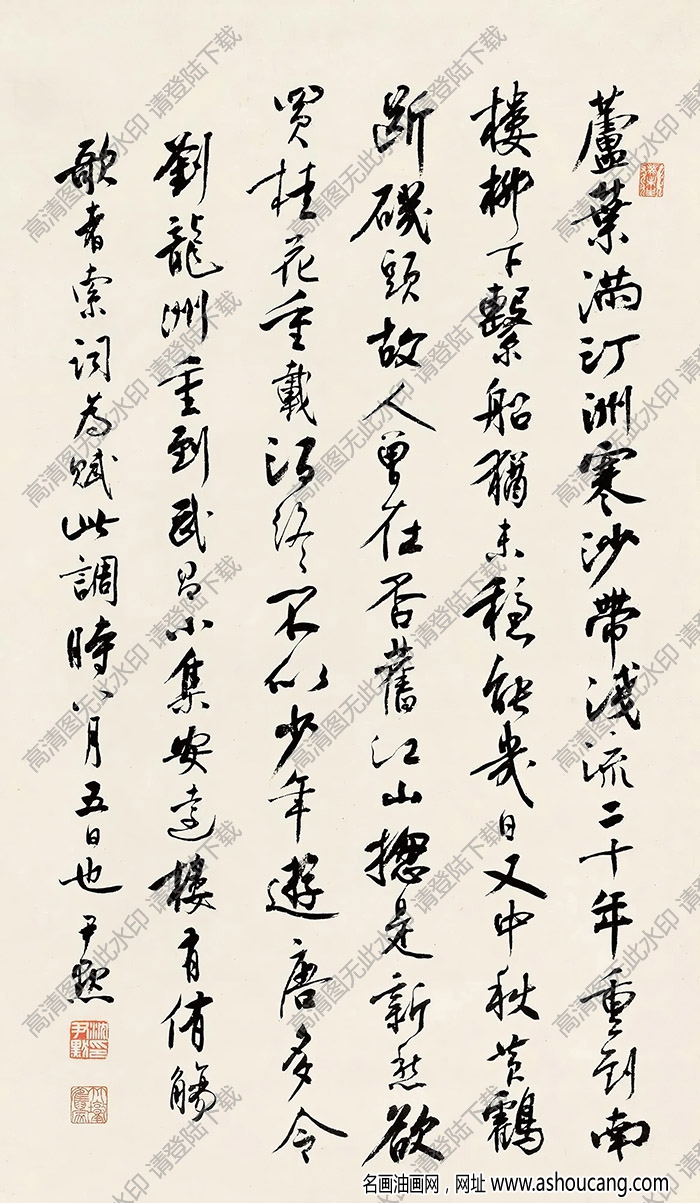 蘆葉滿汀洲寒沙帶淺流二十年重到南
樓柳下繫船猶未穩能幾日又中秋黃鶴
斷磯頭故人曾在否舊江山揔是新愁欲
買桂花重載酒終不似少年遊唐多令
劉龍洲重到武昌小集安遠樓有侑觴
歌者索詞為賦此調時八月五日也尹默
沈尹默印
高清图无此水印 请登陆下载
名画油画网，网址 www.ashoucang.com